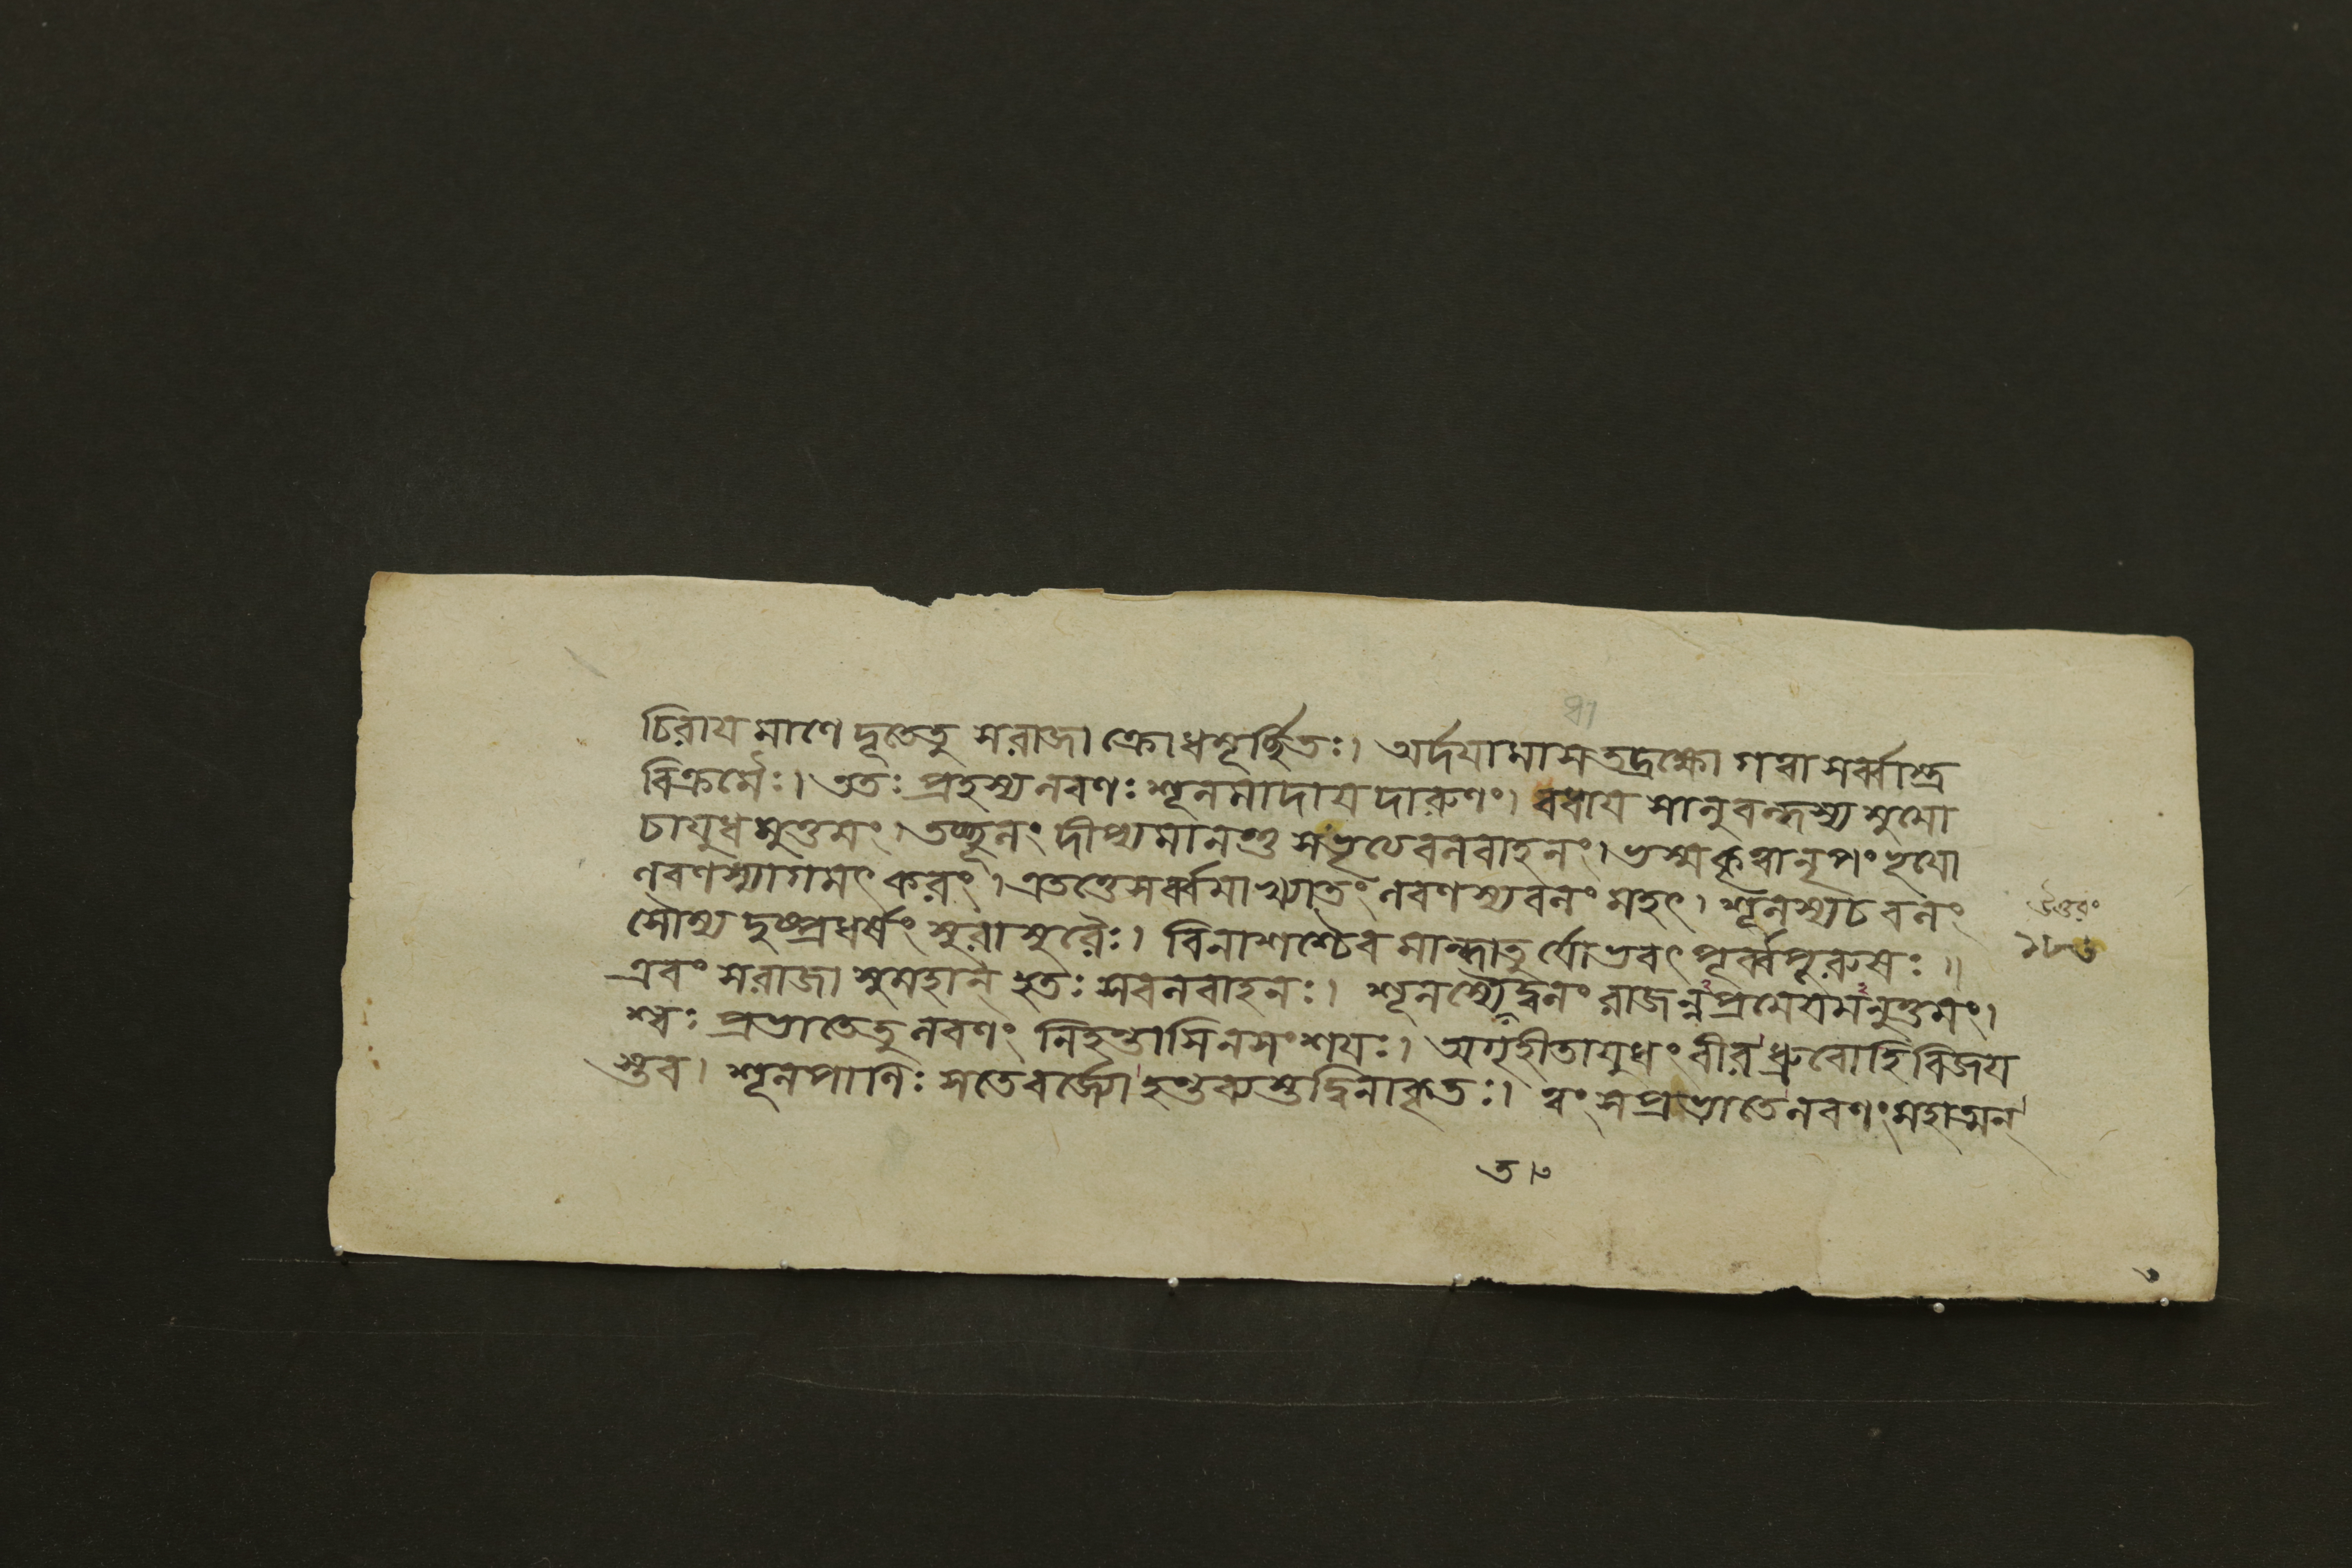 চিরায মাণে দূতেতু সরাজা ক্রোধমূর্চ্ছিতঃ। অর্দযামাস তদ্রক্ষো গত্বা সর্ব্বাস্ত্র
বিক্রমৈঃ। ততঃ প্রহস্য নবণঃ শূনমাদায দারুণং। বধায সানুবন্ধস্য মুমো
চাযুধমুত্তমং। তচ্ছূনং দীপ্যমানন্তু সভৃত্যেবনবাহনং। ভস্মকৃত্বা নৃপং ভূযো
ণবণস্যাগমৎ করং। এতত্তেসর্ব্বমাখ্যাতং নবণস্যবনং মহৎ। শূনস্যচবনং
সৌম্য দুষ্প্রধর্ষং সুরাসুরৈঃ। বিনাশশ্চৈব মান্ধাতুর্যো ভবৎ পূর্ব্বপূরুষঃ॥
এবং সরাজা সুমহান্ হতঃ সবনবাহনঃ। শূনস্যৈদ্বনং রাজন্নপ্রমেযমনুত্তমং।
শ্বঃ প্রভাতেতু নবণং নিহন্তাসিনসংশযঃ। অগৃহীতাযুধং বীর ধ্রুবোহি বিজয
স্তব। শূনপাণিঃ সতেবর্জ্যো হন্তব্যস্তদ্বিনাকৃতঃ। ত্বং সপ্রভাতেনবণং মহাত্মন্
উত্তরং